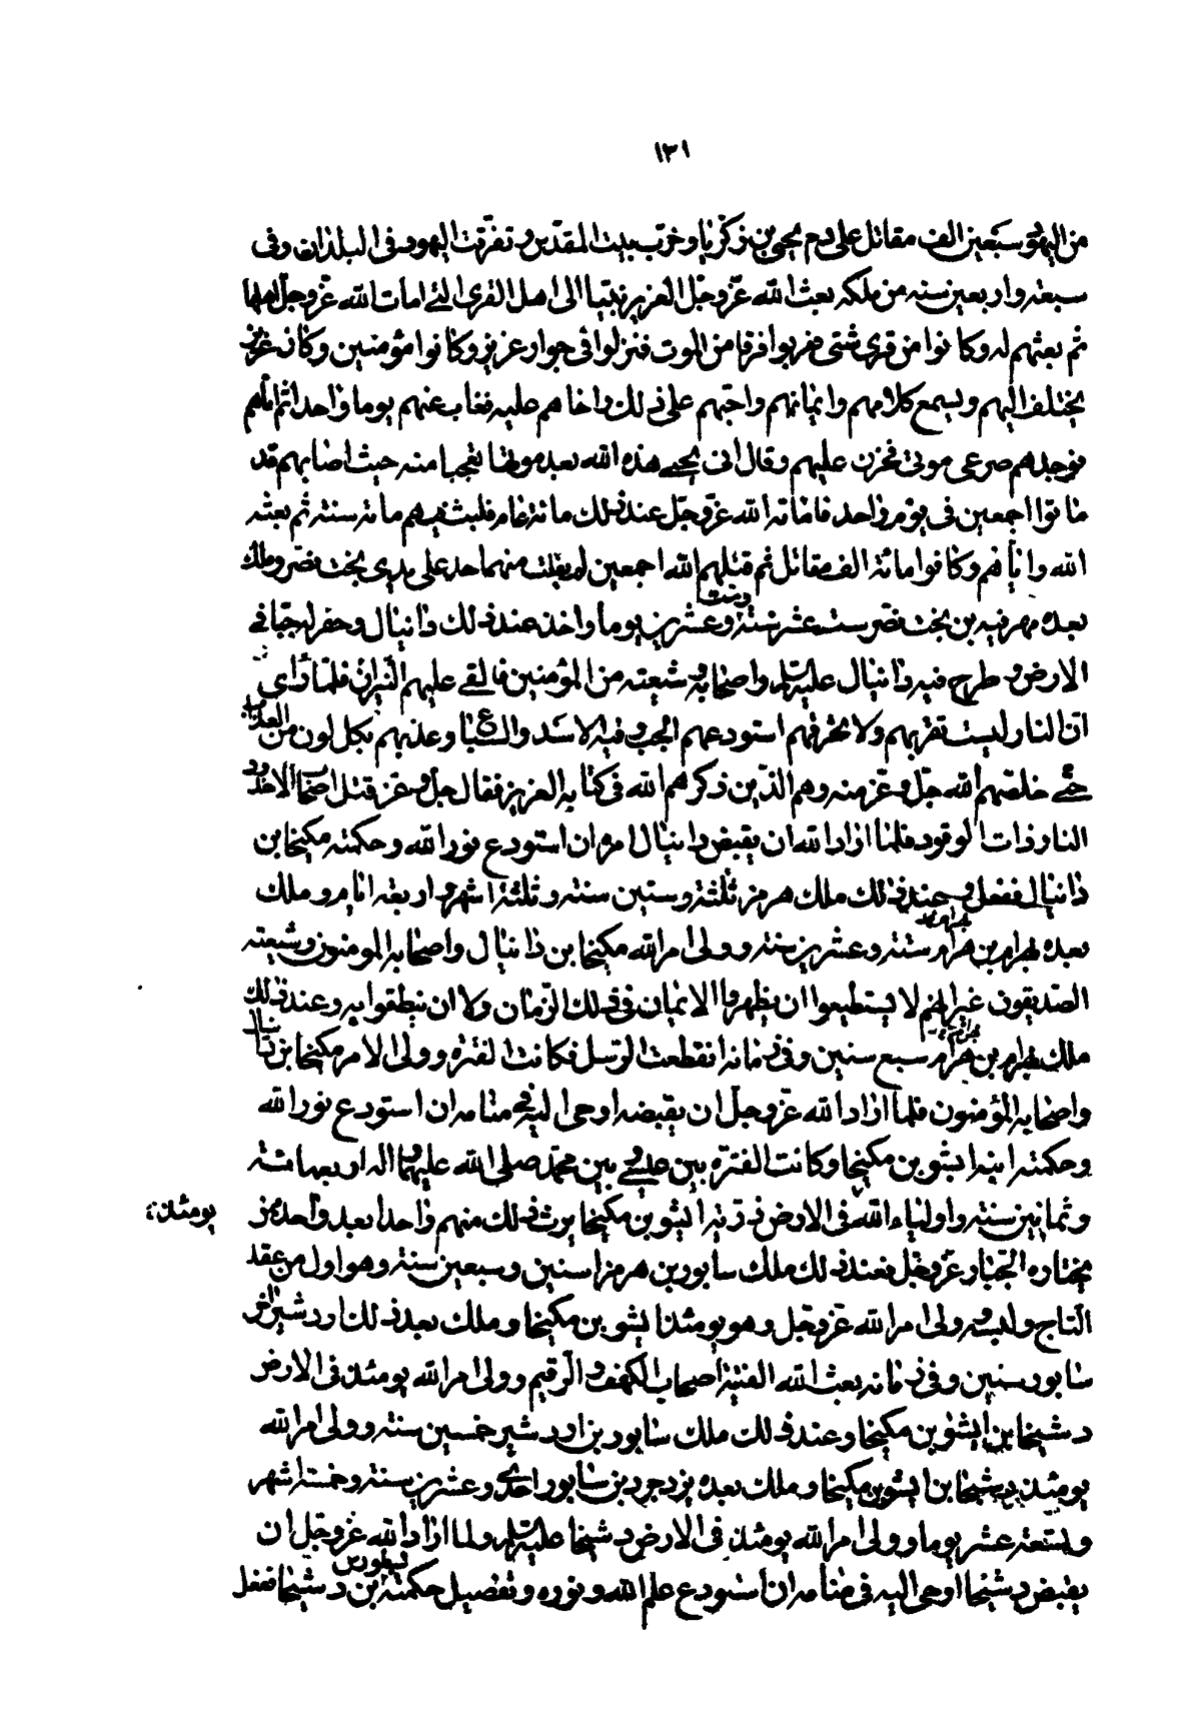 ١٣١
من اليهود سبعين الف مقاتل على دم يحيى بن زكريا وخرب بيت المقدس وتفرقت اليهود فى البلدان وفى
سبعة واربعين سنه من ملكه بعث الله عز وجل العزير نبيا الى اهل القرى التى امات الله عز وجل اهلها
ثم بعثهم له وكانوا من قرى شتى فهربوا فرقا من الموت فنزلوا فى جوار عزير وكانوا مؤمنين وكان عزير
يختلف اليهم ويسمع كلامهم وايمانهم واحبهم على ذلك واخاهم عليه فغاب عنهم يوما واحدا ثم اتاهم
فوجدهم صرعى موتى فحزن عليهم وقال انى يحيى هذه الله بعد موتها تعجبا منه حيث اصابهم قد
ماتوا اجمعين فى يوم واحد فاماته الله عز وجل عند ذلك مائة عام فلبث فيهم مائة سنة ثم بعثه
الله واياهم وكانوا مائة الف مقاتل ثم قتلهم الله اجمعين لم يفلت منهم احد على يدى بخت نصر وملك
بعده مهرفيه بن بخت نصر ست عشر سنة وعشرين يوما واخذ عند ذلك دانيال وحفر له جبا فى
الارض وطرح فيه دانيال عليه السلم واصحابه وشيعته من المؤمنين فالقى عليهم النيران فلما راى
ان النار ليست تقربهم ولا تحرقهم استودعهم الجب وفيه الاسد والسباع وعذبهم بكل لون من العذاب
حتى خلصهم الله جل وعز منه وهم الذين ذكرهم الله فى كتابه العزيز فقال جل وعز قتل اصحاب الاخدود
النار ذات الوقود فلما اراد الله ان يقبض دانيال امره ان استودع نور الله وحكمته مكيخا بن
دانيال ففعل وعند ذلك ملك هرمز ثلثة وستين سنة وثلثة اشهر واربعة ايام وملك
بعده بهرام بن بهرام ستة وعشرين سنة وولى امر الله مكيخا بن دانيال واصحابه المومنون وشيعته
الصديقون غير انهم لا يستطيعوا ان يظهروا الايمان فى ذلك الزمان ولا ان ينطقوا به وعند ذلك
ملك بهرام بن بهرام سبع سنين وفى زمانه انقطعت الرسل فكانت الفترة وولى الامر مكيخا بن دانيال
واصحابه المؤمنون فلما اراد الله عز وجل ان يقبضه اوحى اليه فى منامه ان استودع نور الله
وحكمته ابنه ايشو بن مكيخا وكانت الفترة بين عيسى وبين محمد صلى الله عليهما واله اربعمائة
وثمانين سنة واولياء الله فى الارض ذرية ايشو بن مكيخا يرث ذلك منهم واحدا بعد واحد ممن
يومئذ
يختاره الجبار عز وجل فعند ذلك ملك سابور بن هرمز اسنين وسبعين سنة وهو اول من عقد
التاج ولبسه وولى امر الله عز وجل وهو يومئذ ايشو بن مكيخا وملك بعد ذلك اردشير اخو
سابور سنين وفى زمانه بعث الله الفتية اصحاب الكهف والرقيم وولى امر الله يومئذ فى الارض
دشيخا بن ايشو بن مكيخا وعند ذلك ملك سابور بن اردشير خمسين سنة وولى امر الله
يومئذ دشيخا بن ايشو بن مكيخا وملك بعده يزدجرد بن سابور احدى وعشرين سنة وخمسة اشهر
وتسعة عشر يوما وولى امر الله يومئذ فى الارض دشيخا عليه السلم ولما اراد الله عز وجل ان
يقبض دشيخا اوحى اليه فى منامه ان استودع علم الله ونوره وتفصيل حكمته نسطورس بن دشيخا ففعل